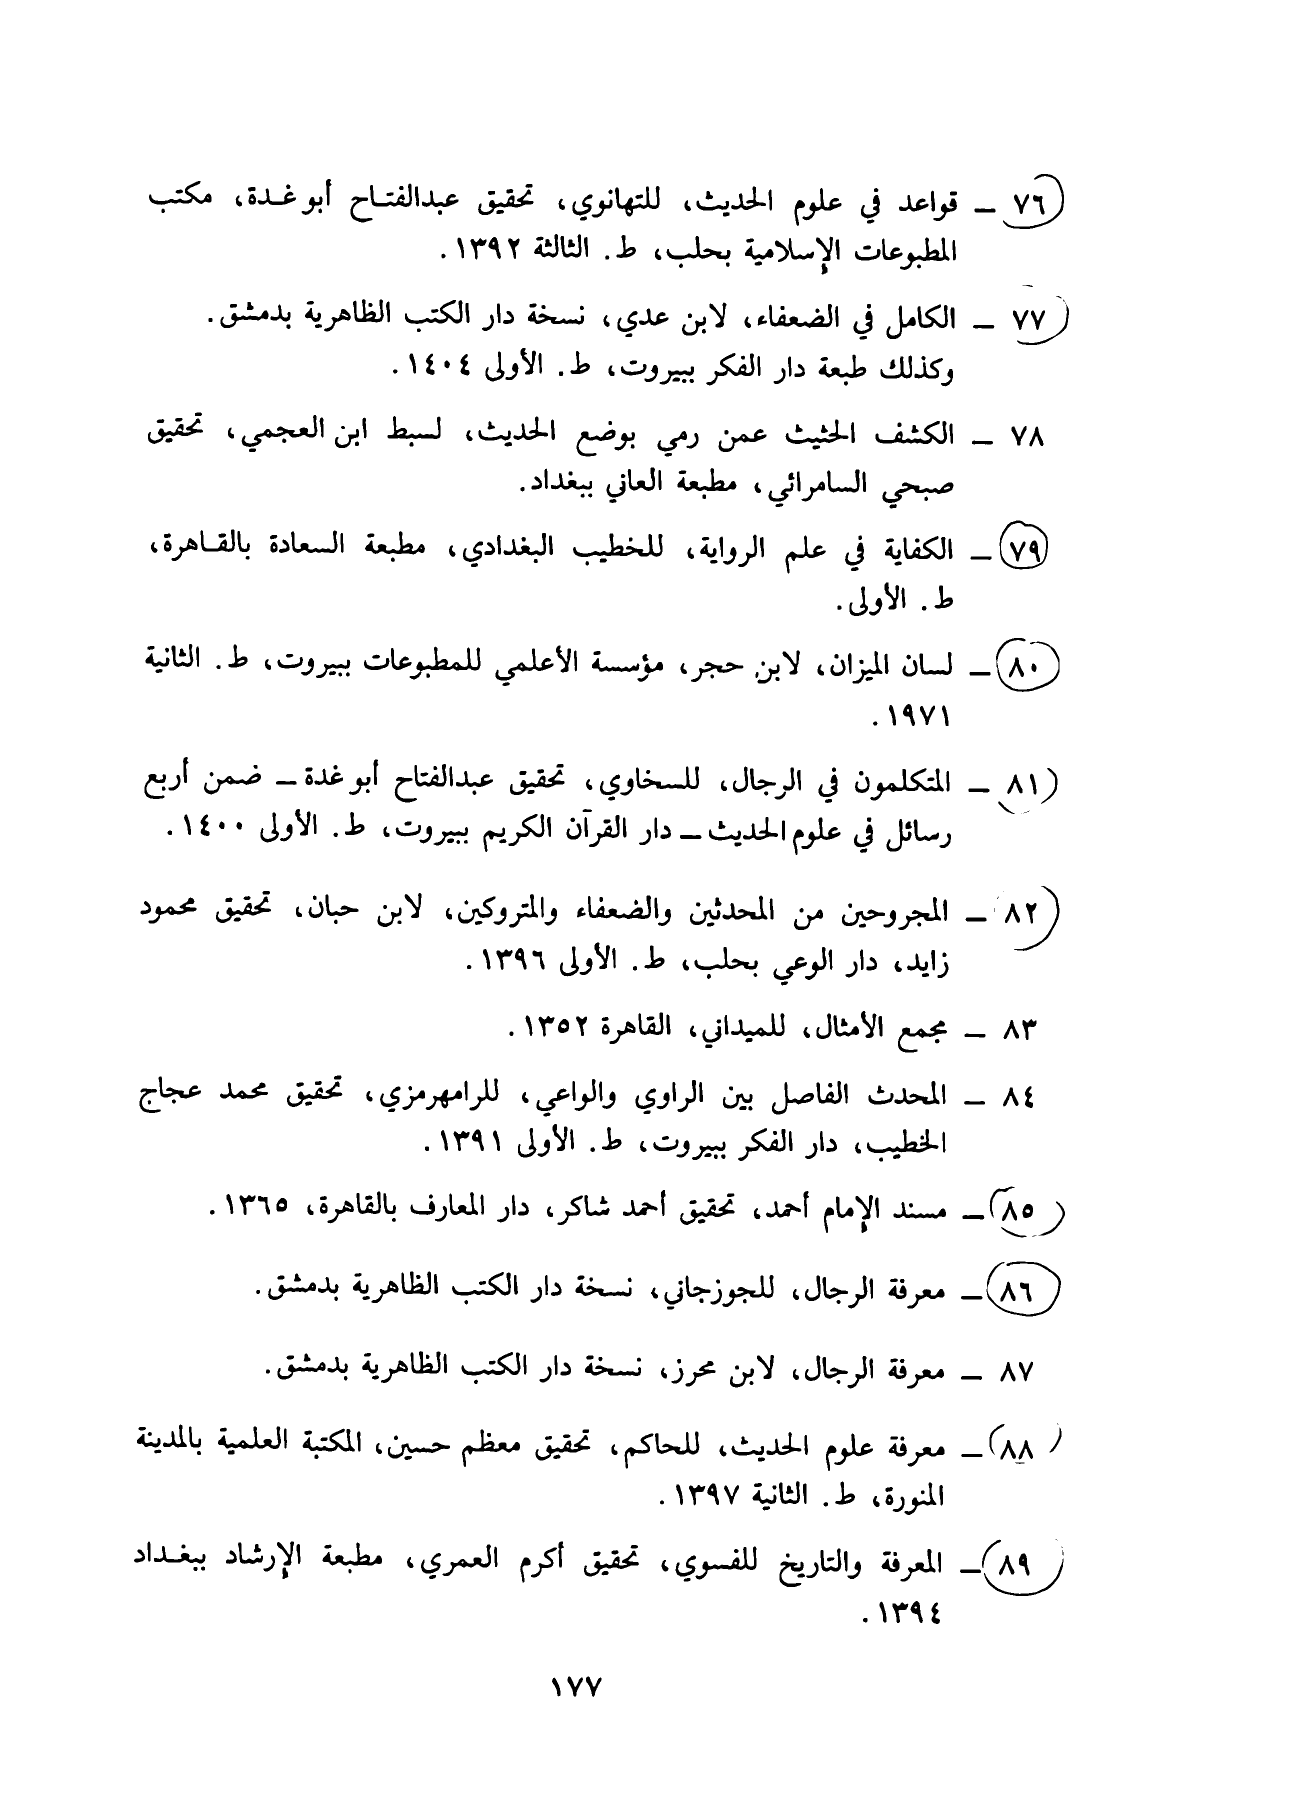 ٧٦ ــ قواعد في علوم الحديث، للتهانوي، تحقيق عبدالفتـاح أبو غـدة، مكتب
المطبوعات الإسلامية بحلب، ط. الثالثة ١٣٩٢.
٧٧ ــ الكامل في الضعفاء، لابن عدي، نسخة دار الكتب الظاهرية بدمشق.
وكذلك طبعة دار الفكر ببيروت، ط. الأولى ١٤٠٤.
٧٨ ــ الكشف الحثيث عمن رمي بوضع الحديث، لسبط ابن العجمي، تحقيق
صبحي السامرائي، مطبعة العاني ببغداد.
٧٩ ــ الكفاية في علم الرواية، للخطيب البغدادي، مطبعة السعادة بالقـاهرة،
ط. الأولى.
٨٠ ــ لسان الميزان، لابن حجر، مؤسسة الأعلمي للمطبوعات ببيروت، ط. الثانية
١٩٧١.
٨١ ــ المتكلمون في الرجال، للسخاوي، تحقيق عبدالفتاح أبو غدة ــ ضمن أربع
رسائل في علوم الحديث ــ دار القرآن الكريم ببيروت، ط. الأولى ١٤٠٠.
٨٢ ــ المجروحين من المحدثين والضعفاء والمتروكين، لابن حبان، تحقيق محمود
زايد، دار الوعي بحلب، ط. الأولى ١٣٩٦.
٨٣ ــ مجمع الأمثال، للميداني، القاهرة ١٣٥٢.
٨٤ ــ المحدث الفاصل بين الراوي والواعي، للرامهرمزي، تحقيق محمد عجاج
الخطيب، دار الفكر ببيروت، ط. الأولى ١٣٩١.
٨٥ ــ مسند الإمام أحمد، تحقيق أحمد شاكر، دار المعارف بالقاهرة، ١٣٦٥.
٨٦ ــ معرفة الرجال، للجوزجاني، نسخة دار الكتب الظاهرية بدمشق.
٨٧ ــ معرفة الرجال، لابن محرز، نسخة دار الكتب الظاهرية بدمشق.
٨٨ ــ معرفة علوم الحديث، للحاكم، تحقيق معظم حسين، المكتبة العلمية بالمدينة
المنورة، ط. الثانية ١٣٩٧.
٨٩ ــ المعرفة والتاريخ للفسوي، تحقيق أكرم العمري، مطبعة الإرشاد ببغـداد
١٣٩٤.
١٧٧